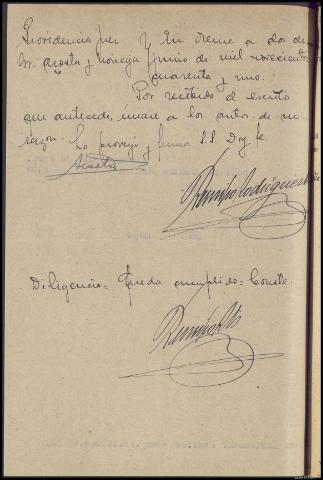 Providencia Juez } En Orense a dos de
Sr. Acosta y Noriega } Junio de mil novecientos
cuarenta y uno.
Por recibido el escrito
que antecede, unase a los autos de su
razon. Lo proveyó y firma S.S. Doy fe
Acosta
Remigio Rodriguez
Diligencia = Queda cumplido. Consta.